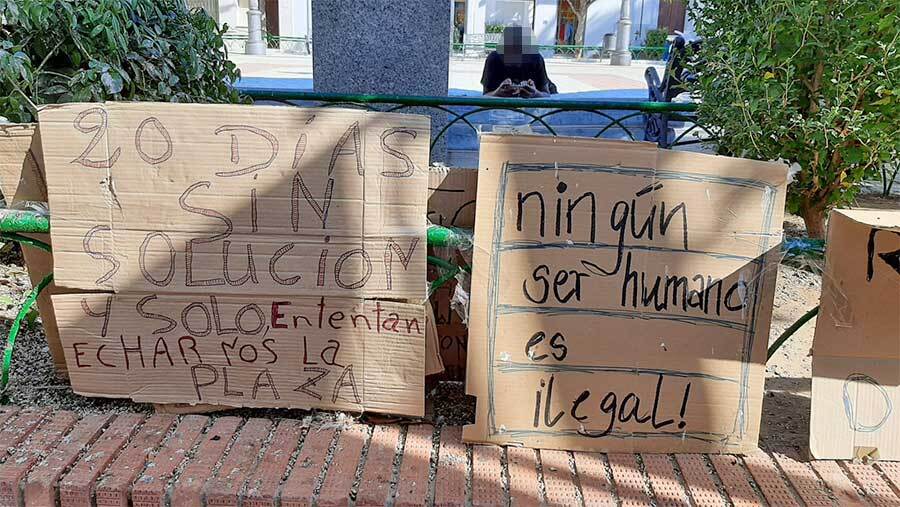 20 DÍAS
SIN
SOLUCION
Y SOLO, Ententan
ECHAR NOS LA
PLAZA
ningún
ser humano
es
ilegal!